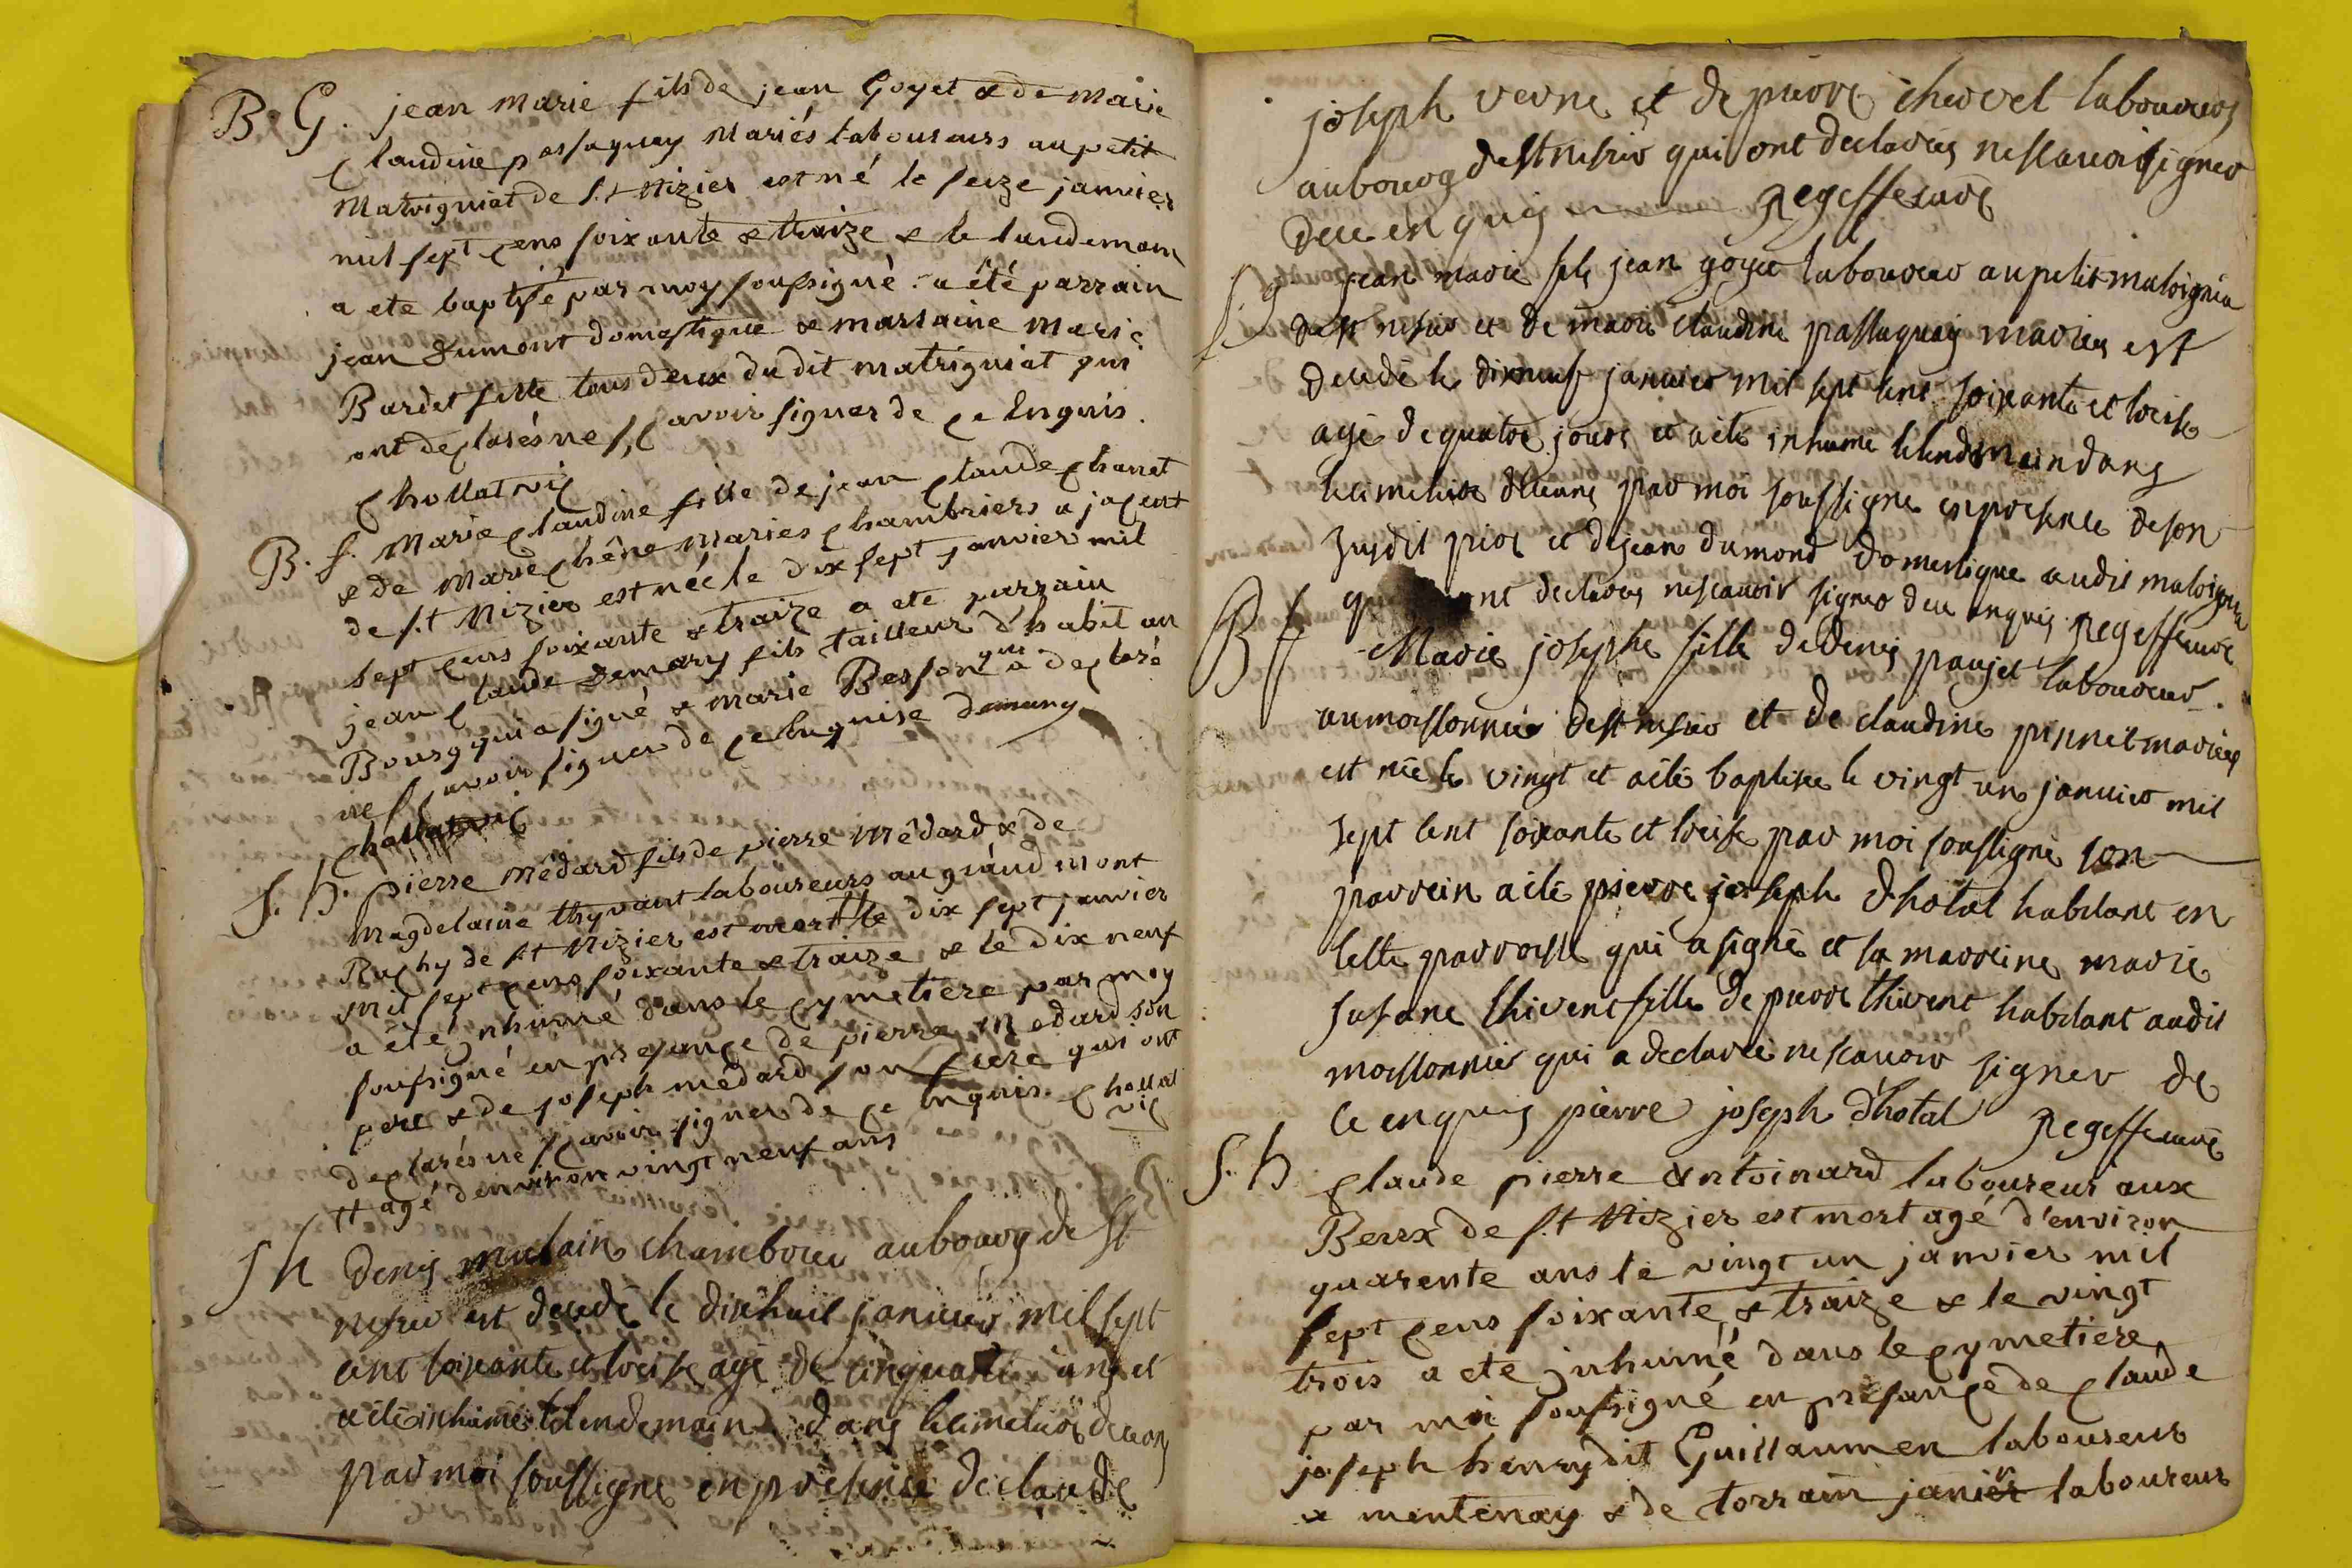 B. G. jean marie fils de jean Goyet & de marie
claudine passaquay mariés laboureurs au petit
matrigniat de s.t Nizier est né le seize janvier
mil sept cens soixante & traize & le landemain
a ete baptisé par moy soussigné a été parrain
jean dumont domestique & marraine marie
Bardet fille tous deux du dit matrigniat qui
ont declarés ne sçavoir signer de ce Enquis.
Chollat vic
B. f. Marie claudine fille de jean claude chanet
& de marie chêne maries chambriers a jacent
de s.t Nizier est née le dix sept janvier mil
sept cens soixante & traize a ete parrain
jean claude demary fils tailleur d'habit au
Bourg qui a signé & marie Besson qui a declaré
ne sçavoir signer de ce Enquise demary
Chollat vic
S. h. pierre médard fils de pierre médard & de
magdelaine thyvant laboureurs au grand mont
Rachy de s.t Nizier est mort le dix sept janvier
mil sept cens soixante & traize & le dix neuf
a été jnhumé dans le cymetiere par moy
soussigné en presence de pierre medard son
pere & de joseph médard son frere qui ont
declarés ne sçavoir signer de ce Enquis. Chollat
vic
tt agé d'environ vingt neuf ans
S h denis chambrier au bourg de st
nisier est decedé le dixhuit janvier mil sept
cent soixante et treise agé de cinquante ans et
a été inhumé le lendemain dans le cimetiere deceans
par moi soussigné en présence de claude
joseph verne et de pierre chevrel laboureurs
au bourg de st nisier qui ont declarés ne scavoir signer
de ce enquis Regeffe curé
S. g jean marie fils jean goyet laboureur au petit matrignia
de st nisier et de marie claudine passaquay mariés est
decedé le dixneuf janvier mil sept cent soixante et treise
agé de quatre jours et a été inhumé le lendemain dans
le cimetiere deceans par moi soussigné en présence de son
susdit pere et de jean dumond domestique audit matrignia
qui ont declarés ne scavoir signer de ce enquis Regeffe curé
B f Marie josephe fille de denis paujet laboureur
au moissonnier de st nisier et de claudine pennet mariés
est née le vingt et a été baptisée le vingt un janvier mil
sept cent soixante et treise par moi soussigné son
parrein a été pierre joseph d'hotal habitant en
cette parroisse qui a signé et sa marreine marie
susane thivent fille de pierre thivent habitant audit
moissonnier qui a declaré ne scavoir signer de
ce enquis pierre joseph d'hotal Regeffe curé
S. h claude pierre Antoinard laboureur aux
Berrx de s.t Nizier est mort agé d'environ
quarente ans le vingt un janvier mil
sept cens soixante & traize & le vingt
trois a ete jnhumé dans le cymetiere
par moi soussigné en présance de claude
joseph henry dit Guillaumen laboureur
a mentenay & de torrain janier laboureur